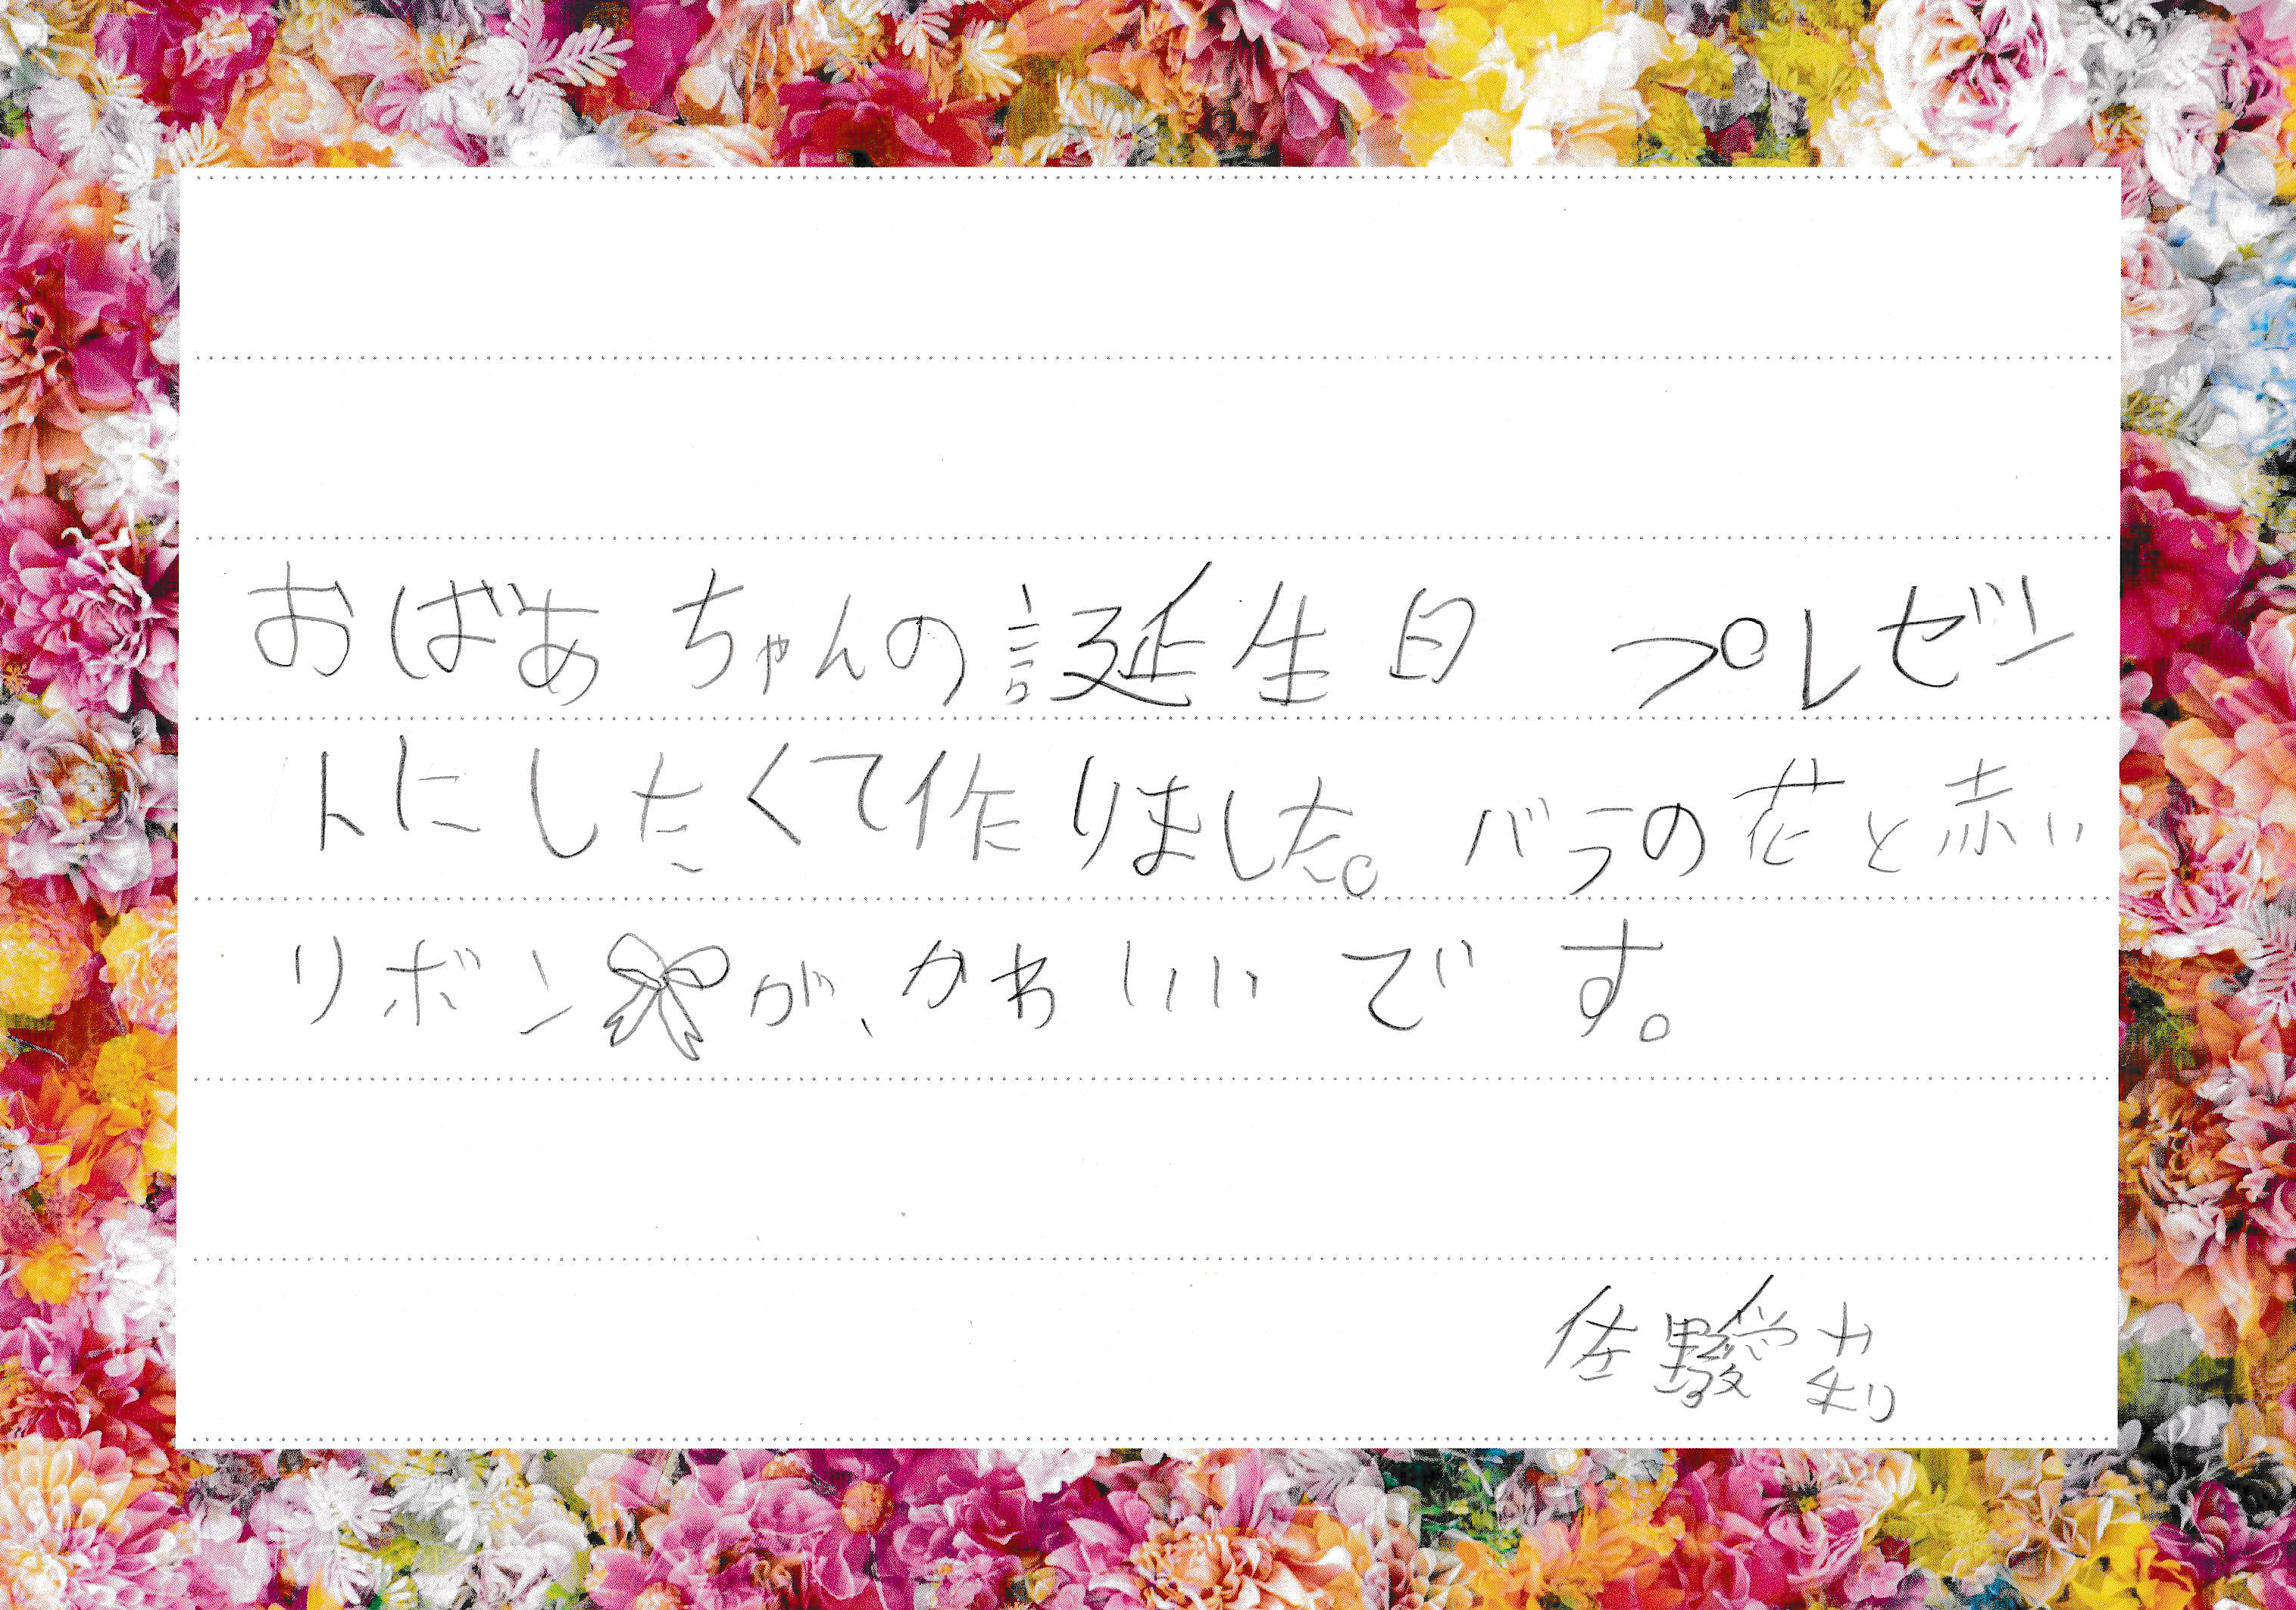 おばあちゃんの誕生日 プレゼン
トにしたくて作りました。バラの花と赤い
リボンが、かわいいです。
佐